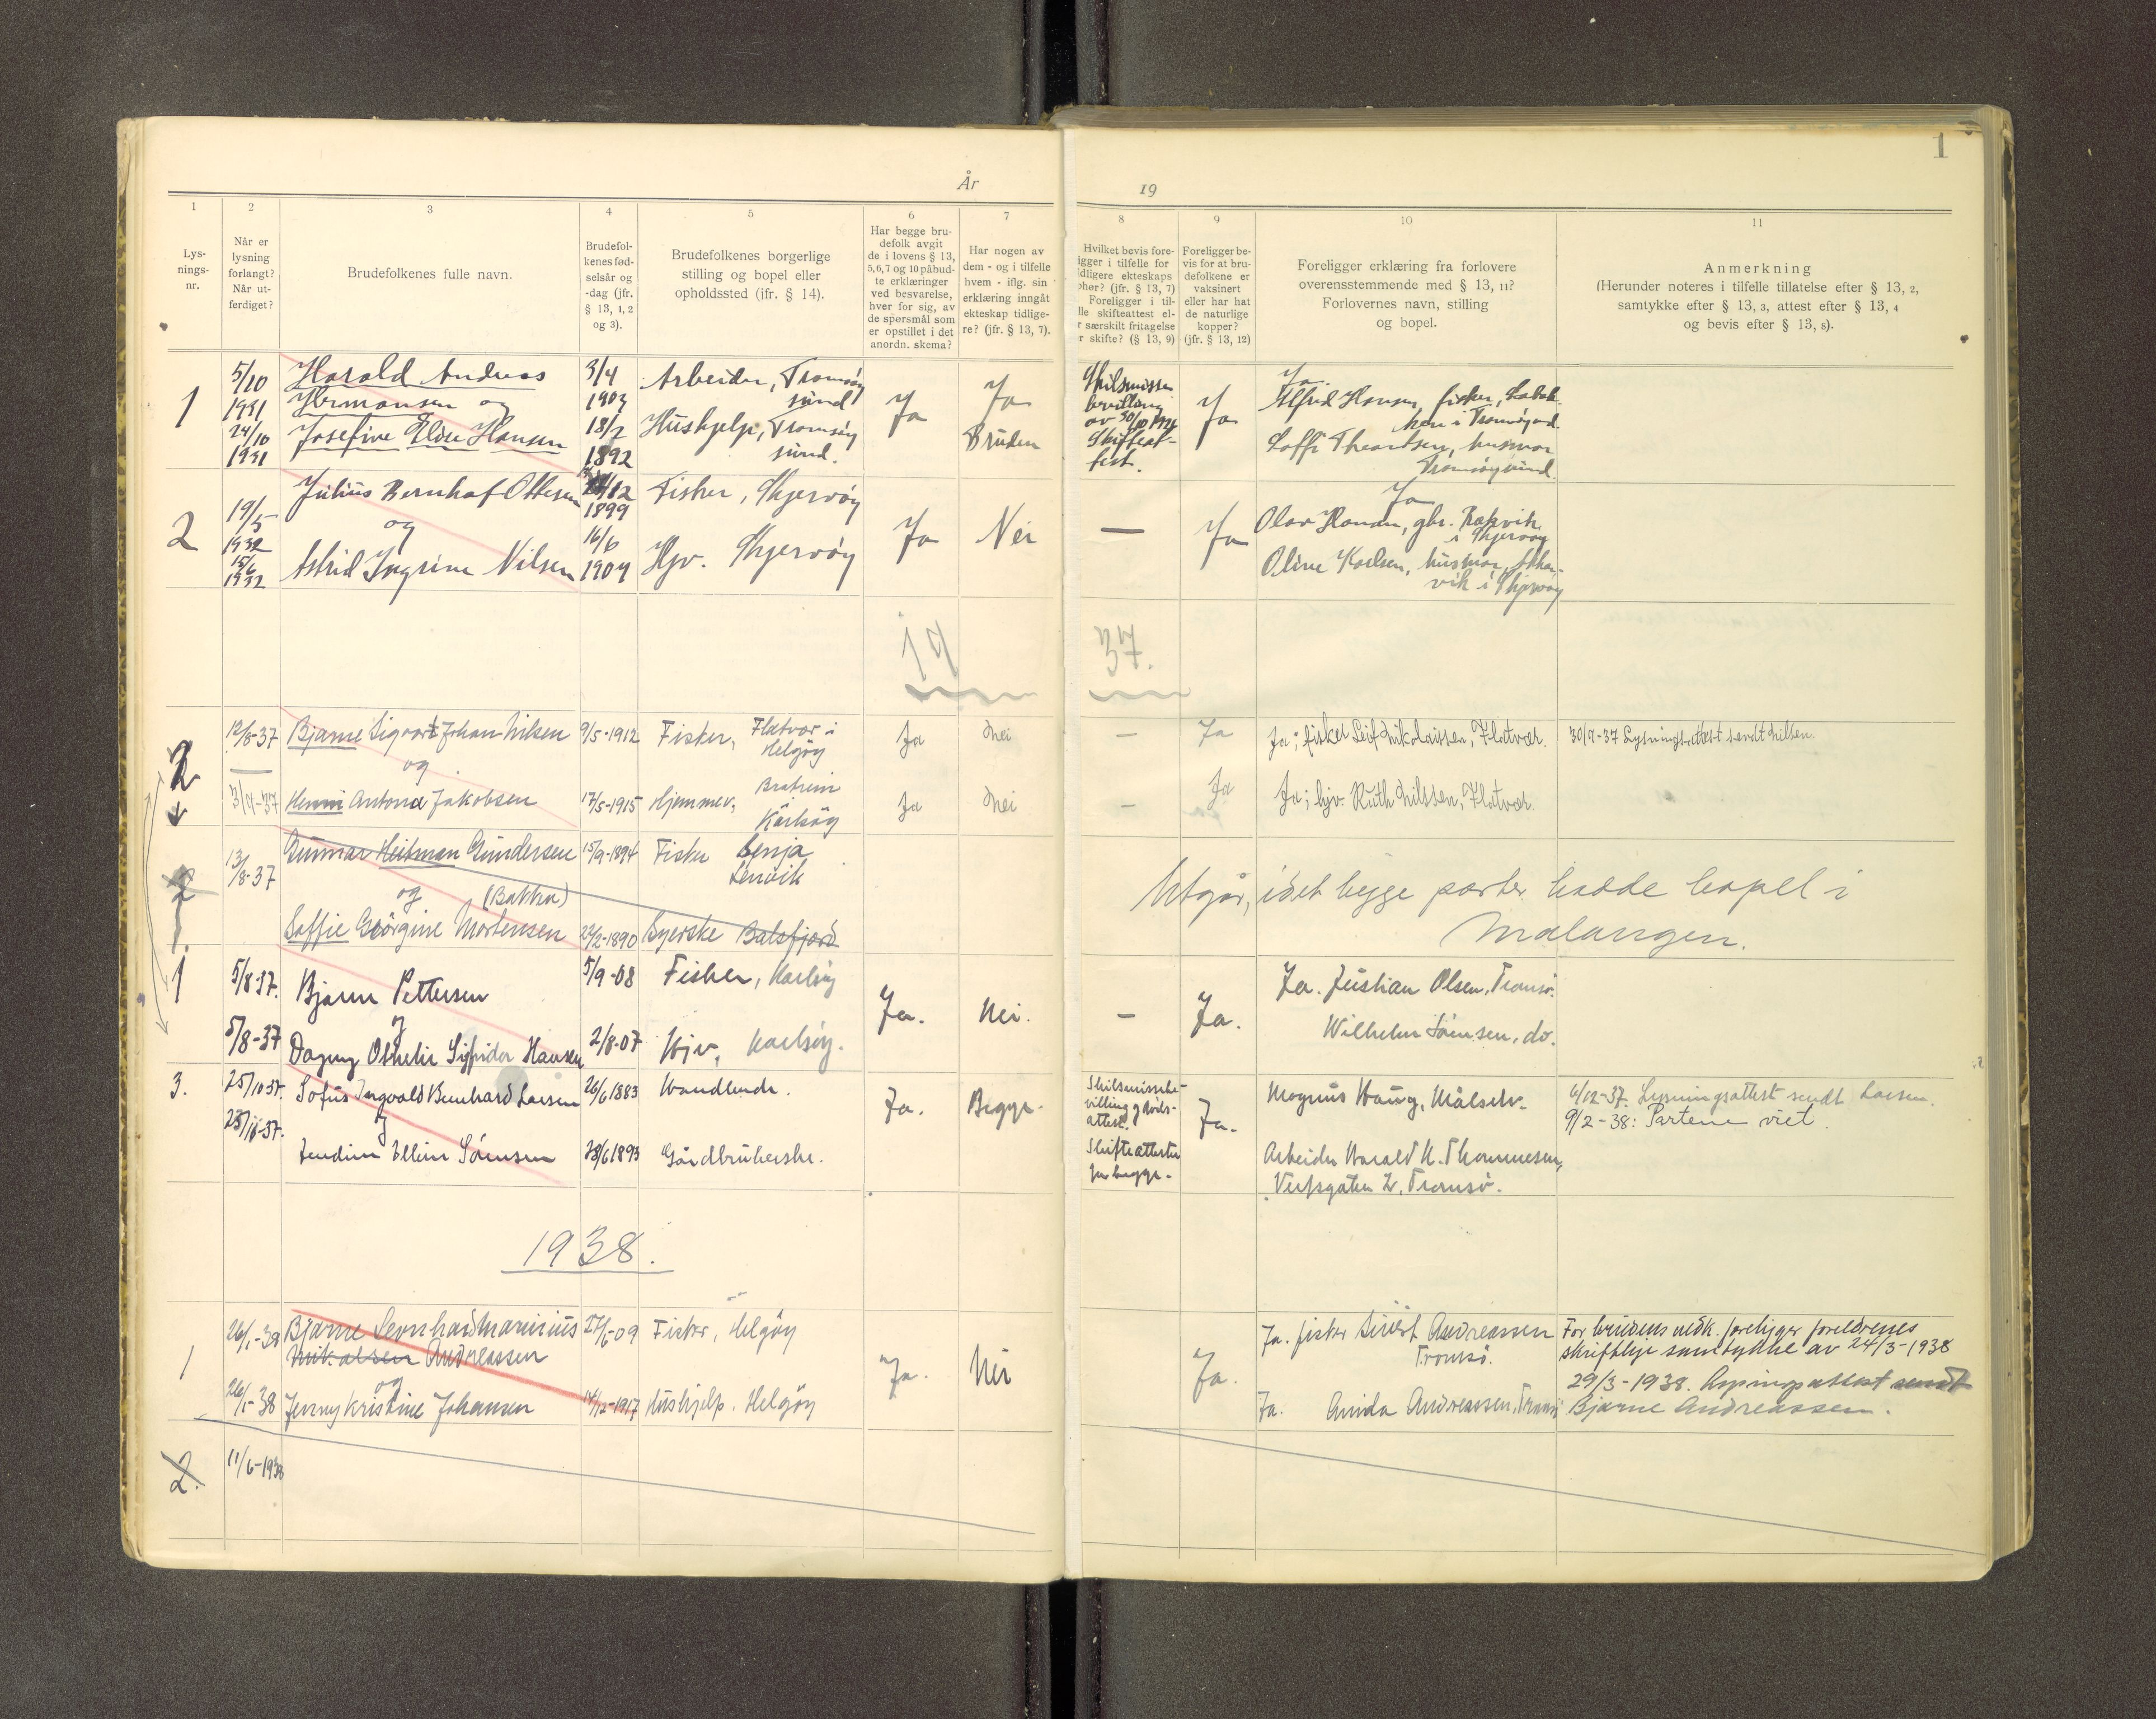 1
År
19
1
2
3
4
5
6
7
8
9
10
11
Lys-
nings-
nr.
Når er
lysning
forlangt?
Når ut-
ferdiget?
Brudefolkenes fulle navn.
Brudefol-
kenes fød-
selsår og
-dag (jfr.
§ 13, 1, 2
og 3).
Brudefolkenes borgerlige
stilling og bopel eller
opholdssted (ifr. § 14).
Har begge bru-
defolk avgit
de i lovens § 13,
5,6,7 og 10 påbud-
te erklæringer
ved besvarelse,
hver for sig, av
de spørsmål som
er opstillet i det
anordn. skema?
Har nogen av
dem - og i tilfelle
hvem - iflg. sin
erklæring inngåt
ekteskap tidlige-
re? (jfr. § 13, 7).
Hvilket bevis fore-
igger i tilfelle for
idligere ekteskaps
phør? (jfr. § 13, 7)
Foreligger i til-
lle skifteattest el-
r særskilt fritagelse
r skifte? (§ 13, 9)
Foreligger be-
vis for at bru-
defolkene er
vaksinert
eller har hat
de naturlige
kopper?
(jfr. § 13, 12)
Foreligger erklæring fra forlovere
overensstemmende med § 13, 11?
Forlovernes navn, stilling
og bopel.
Anmerkning
(Herunder noteres i tilfelle tillatelse efter § 13, 2,
samtykke efter § 13, 3, attest efter § 13, 4
og bevis efter § 13, 8).
1
5/10
1931
24/10
1931
Harald Andreas
Hermansen og
Josefine Elise Hansen
3/4
1903
18/2
1892
Arbeider, Tromsøy
sund
Hushjelp, Tromsøy
sund.
Ja
Ja
Bruden
Skilsmisse
bevilling
av 30/10
Skifteat-
test.
Ja
Ja.
Alfred Hansen, fisker,
i Tromsøysd.
Theartsen, husmor
Tromsøysund.
2
19/5
1932
15/6
1932
Julius Bernhof Ottesen
og
Astrid Ingrine Nilsen
12
1899
16/6
1904
Fisker, Skjervøy
Hjv. Skjervøy
Ja
Nei
—
Ja
Ja
Olav Hansen, gbr.
i Skjervøy
Oline Karlsen, husmor,
vik i Skjervøy
19
37.
2
12/8-37
3/9-37
Bjarne Sigvart Johan Nilsen
og
Henni Antona Jakobsen
9/5-1912
17/5-1915
Fisker, Flatvær i
Helgøy
Hjemmev,
Karlsøy
Ja
Nei
—
Ja
Ja
Nei
—
Ja
Ja; fisker Leif Nikolaissen, Flatvær.
Ja; hjv. Ruth Nilssen, Flatvær.
30/9-37 Lysningsattest sendt Nilsen.
2
13/8-37
Gunnar Heitman Gundersen
og (Bakken)
Soffie Georgine Mortensen
15/9-1894
22/2-1890
Fisker Senja
Lenvik
Syerske Balsfjord
Utgår, idet begge parter hadde bopel i
Malangen.
1
5/8-37.
5/8-37
Bjarne Pettersen
og
Dagny Othelie Sigfrida Hansen
5/9-08
2/8-07
Fisker, Karlsøy
Hjv, Karlsøy.
Ja.
Nei.
—
Ja.
Ja. Justian Olsen, Tromsø.
Wilhelm Sørensen, do.
3.
25/10 37.
Sofus Ingvald Bernhard Larsen
og
Ellen Sørensen
26/6 1883
28/6 1893
Handlende.
Gårdbrukerske.
Ja.
Begge.
Skilsmissebe-
villing og døds-
attest.
Skifteattester
for begge.
Ja.
Magnus Haug, Målselv.
Arbeider Harald K. Thomassen,
Verftsgaten 2, Tromsø.
4/12-37. Lysningsattest sendt Larsen.
9/2-38: Partene viet.
1938.
1
26/1-38
26/1-38
Bjarne Leonhard Marinius
Mikalsen Andreassen
og
Jenny Kristine Johansen
27/6-09
14/12-1917
Fisker, Helgøy
Hushjelp. Helgøy
Ja.
Nei
Ja.
Ja. fisker Sivert Andreassen
Tromsø.
Ja. Amida Andreassen, Tromsø
For brudens vedk. foreligger foreldrenes
skriftlige samtykke av 24/3-1938
29/3-1938. Lysningsattest sendt
Bjarne Andreassen.
2.
11/6-1938